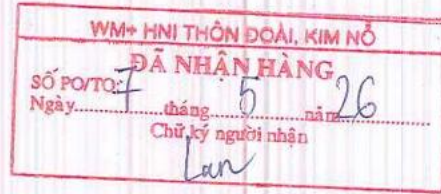 WM+ HNI THÔN ĐOÀI, KIM NỖ
ĐÃ NHẬN HÀNG
SỐ PO/TO:
Ngày 7 tháng 5 năm 26
Chữ ký người nhận
Lan